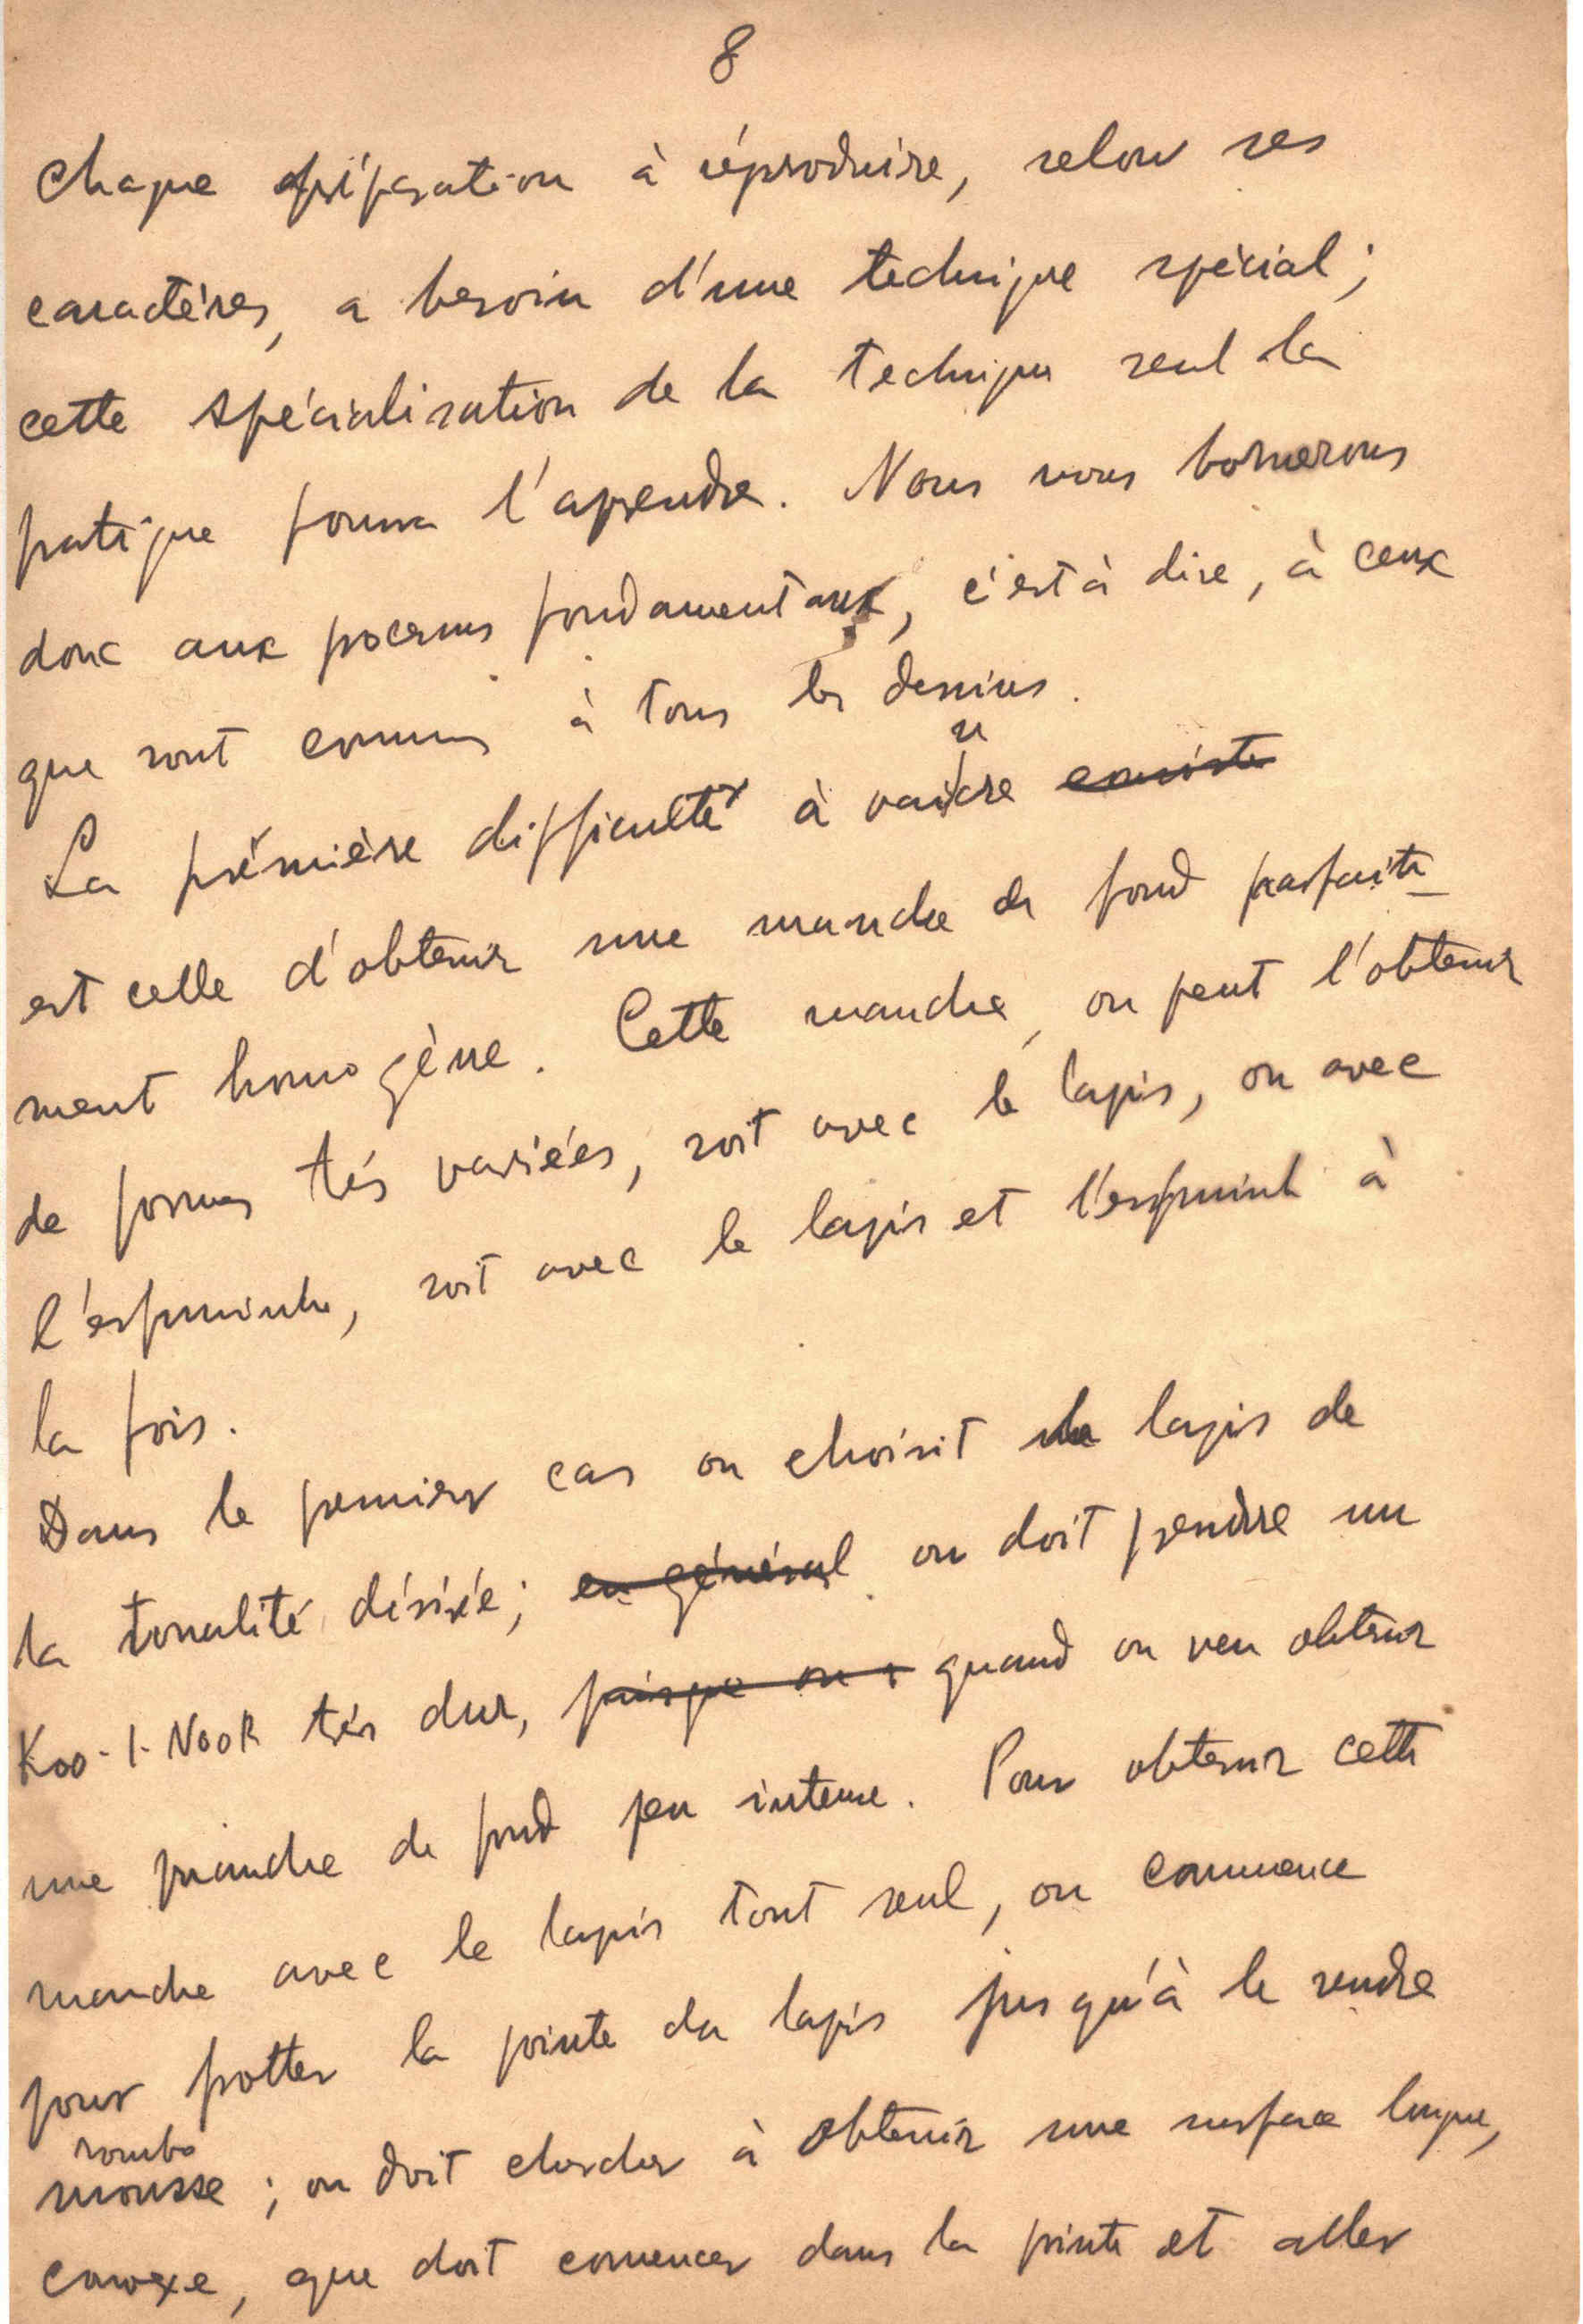 8
Chaque préparation à réproduire, selon ses
caractères, a besoin d'une technique spécial;
cette spécialisation de la technique seul la
pratique pourra l'aprendre. Nous nous bornerons
donc aux procesus fondamentaux, c'est à dire, à ceux
que sont comuns à tous les dessins.
La prémière difficulté à vaincre
est celle d'obtenir une manche de fond parfaite-
ment homogène. Cette manche, on peut l'obtenir
de formes trés variées, soit avec le lapis, ou avec
l'esfuminho, soit avec le lapis et l'esfuminho à
la fois.
Dans le premier cas on choisit le lapis de
la tonalité désirée; on doit prendre un
Koo-I-Noor trés dur, quand on veu obtenir
une manche de fond peu intense. Pour obtenir cette
manche avec le lapis tout seul, on commence
pour frotter la pointe du lapis jusqu'à le rendre
rombo
mousse; on doit chercher à obtenir une surface longue,
convexe, que doit comencer dans la pointe et aller